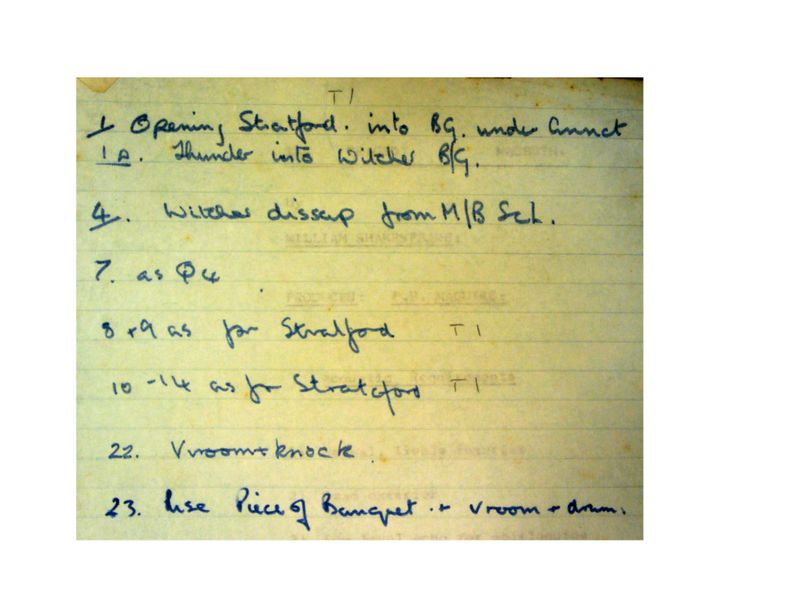 T1
1 Opening Stratford. into BG. under Annct
1A. Thunder into Witches B/G.
MACBETH.
4. Witches dissap from M/B Sch.
WILLIAM SHAKESPEARE:
7. as Q4
PRODUCED: P.P. MAGUIRE:
8 + 9 as for Stratford T1
10 - 14 as for Stratford T1
22. Vroom + knock.
23. Use Piece of Banquet + Vroom + drum.